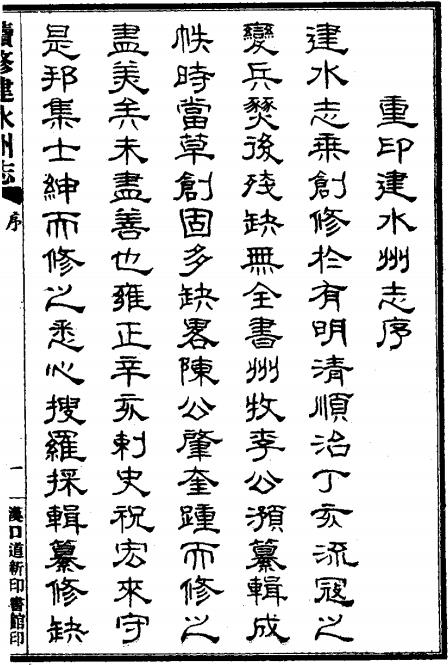 重印建水州志序
建水志乘創修於有明清順治丁亥流寇之
變兵燹後殘缺無全書州牧李公灝纂輯成
帙時當草創固多缺畧陳公肇奎踵而修之
盡美矣未盡善也雍正辛亥刺史祝宏來守
是邦集士紳而修之悉心搜羅採輯纂修缺
續修建水州志
序
一
漢口道新印書館印